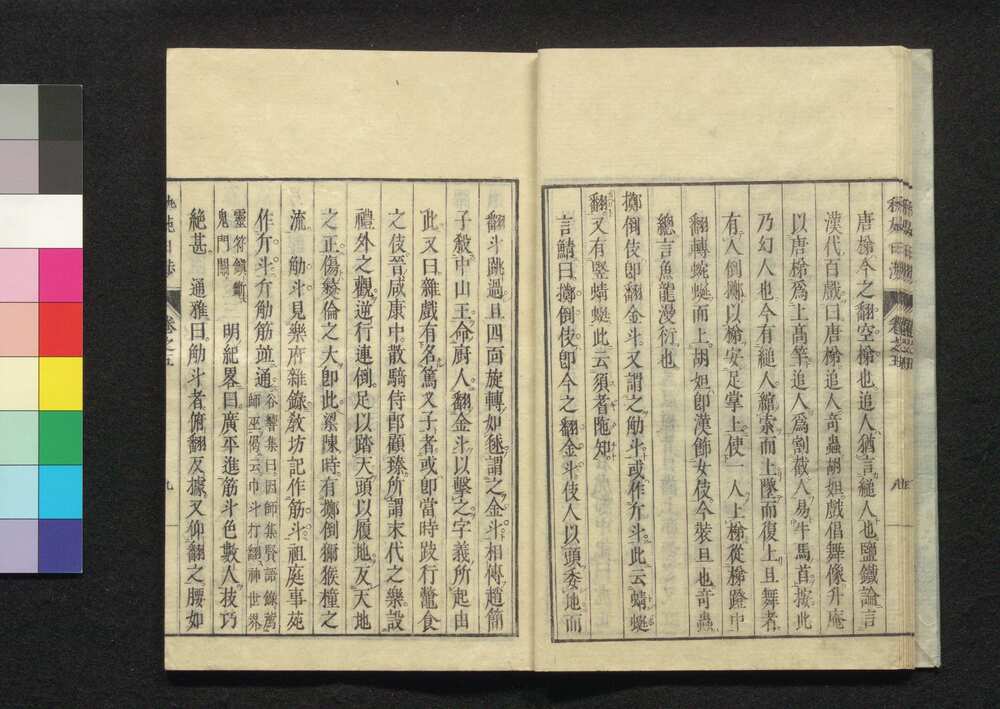 唐梯今之翻空梯也追人猶言縋人也鹽鐵論言
漢代百戲曰唐梯追人奇蟲胡妲戲倡舞像升庵
以唐梯爲上高竿追人爲割截人易牛馬首按此
乃幻人也今有縋人綰索而上墜而復上且舞者
有人倒擲以梯安足掌上使一人上梯從梯蹬中
翻轉蜿蜒而上胡妲即漢飾女伎今裝旦也奇蟲
總言魚龍漫衍也
擲倒伎即翻金斗又謂之觔斗或作斤斗此云蜻蜓
翻又有竪蜻蜓此云須者陁知
言鯖曰擲倒伎即今之翻金斗伎人以頭委地而
翻斗跳過且四面旋轉如毬謂之金斗相傳趙簡
子殺中山王命厨人翻金斗以擊之字義所起由
此又曰雜戲有名篤叉子者或即當時跂行鼈食
之伎晉咸康中散騎侍郎顧臻所謂末代之樂設
禮外之觀逆行連倒足以踏天頭以履地反天地
之正傷彝倫之大即此梁陳時有擲倒獼猴橦之
流 觔斗見樂府雜錄敎坊記作筋斗祖庭事苑
作斤斗斤觔筋竝通
谷響集曰因師集賢語錄薦
師巫偈云巾斗打翻神世界
靈符鎭斷
鬼門關
明紀畧曰廣平進筋斗色數人技巧
絕甚 通雅曰觔斗者俯翻反據又仰翻之腰如
卷之五
九